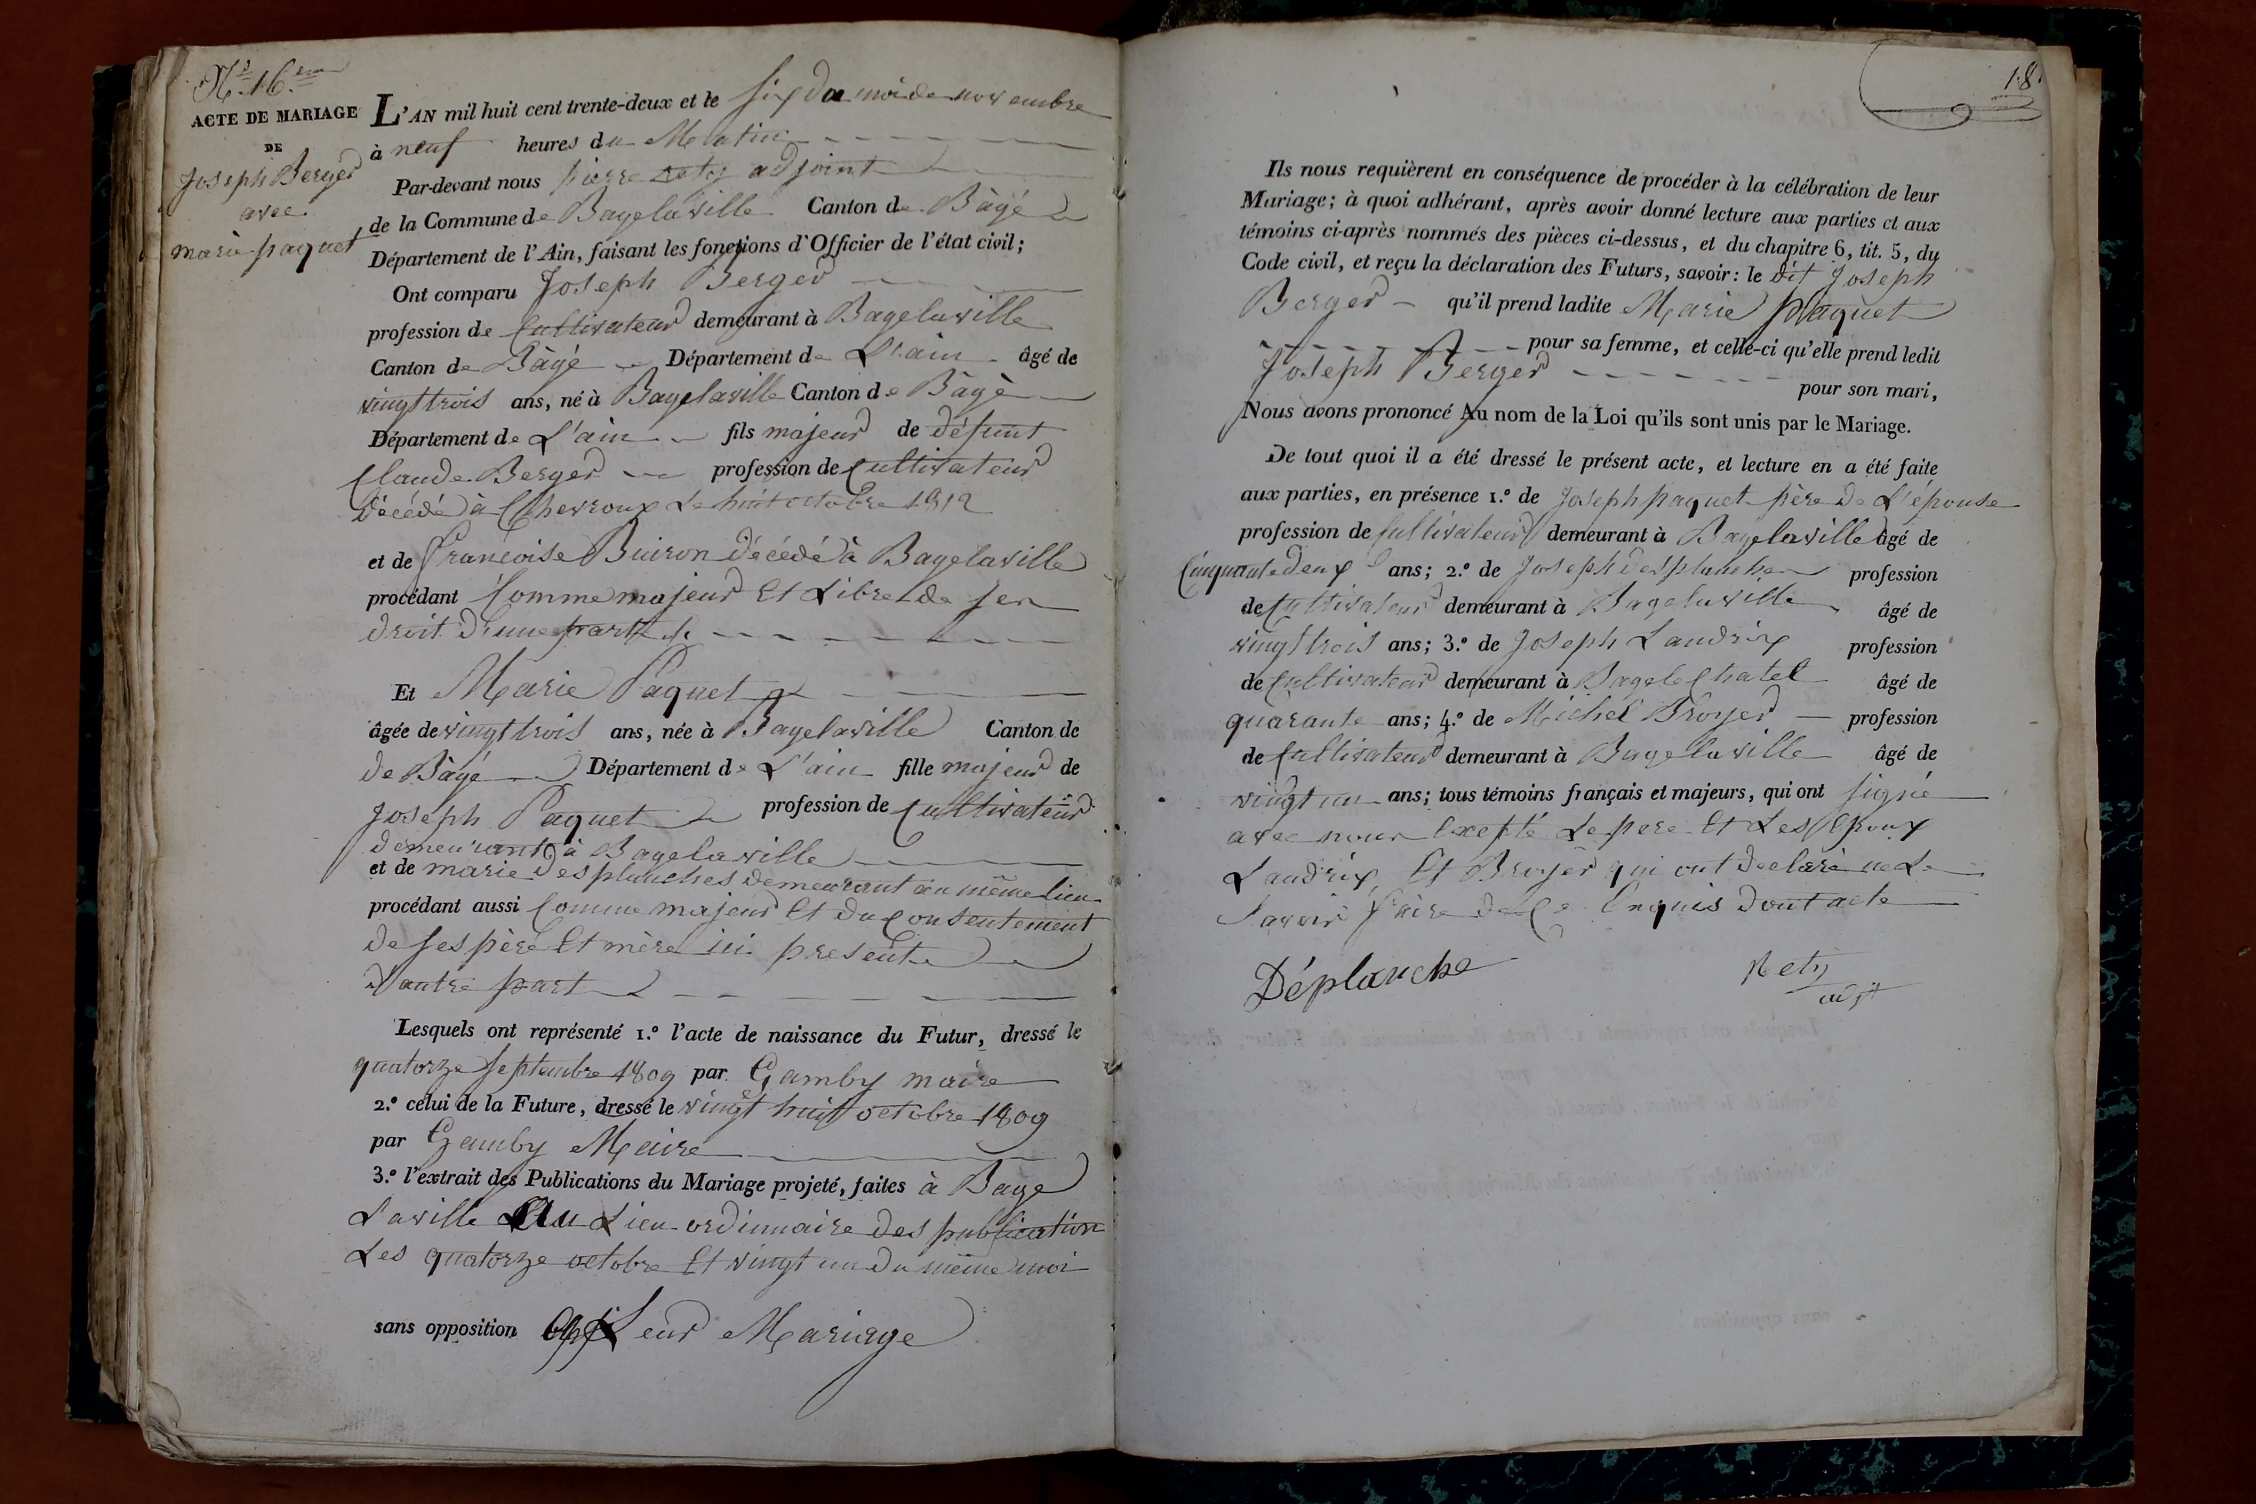 N.º 16.eme
ACTE DE MARIAGE
DE
Joseph Berger
avec
marie paquet
L'AN mil huit cent trente-deux et le six du moi de novembre
à neuf heures du Matin
Par-devant nous pierre Rety adjoint
de la Commune de Bagelaville Canton de Bâgé
Département de l'Ain, faisant les fonctions d'Officier de l'état civil;
Ont comparu Joseph Berger
profession de Cultivateur demeurant à Bagelaville
Canton de Bâgé Département de L'ain âgé de
vingt trois ans, né à Bagelaville Canton de Bâgè
Département de L'ain fils majeur de défunt
Claude Berger profession de Cultivateur
décédé à Chevroux Le huit octobre 1812
et de françoise Buiron décédé à Bagelaville
procédant Comme majeur Et Libre de ses
droit d'une part
Et Marie Paquet
âgée de vingt trois ans, née à Bagelaville Canton de
de Bâgé Département de L'ain fille majeur de
Joseph Paquet profession de Cultivateur
demeurant à Bagelaville
et de marie desplanches demeurant au même lieu
procédant aussi Comme majeur Et du Consentement
de ses père Et mère ici présente
d'autre part
Lesquels ont représenté 1.º l'acte de naissance du Futur, dressé le
quatorze septembre 1809 par Gamby maire
2.º celui de la Future, dressé le vingt huit octobre 1809
par Gamby Maire
3.º l'extrait des Publications du Mariage projeté, faites à Bage
Laville Au Lieu ordinnaire des publication
Les quatorze octobre Et vingt un du même moi
sans opposition Leur Mariage
18.
Ils nous requièrent en conséquence de procéder à la célébration de leur
Mariage; à quoi adhérant, après avoir donné lecture aux parties et aux
témoins ci-après nommés des pièces ci-dessus, et du chapitre 6, tit. 5, du
Code civil, et reçu la déclaration des Futurs, savoir: le dit Joseph
Berger qu'il prend ladite Marie paquet
pour sa femme, et celle-ci qu'elle prend ledit
Joseph Berger pour son mari,
Nous avons prononcé Au nom de la Loi qu'ils sont unis par le Mariage.
De tout quoi il a été dressé le présent acte, et lecture en a été faite
aux parties, en présence 1.º de Joseph paquet père de L'épouse
profession de Cultivateur demeurant à Bagelaville âgé de
Cinquante deux ans; 2.º de Joseph desplanches profession
de Cultivateur demeurant à Bagelaville âgé de
vingt trois ans; 3.º de Joseph Landrix profession
de Cultivateur demeurant à Bagele Chatel âgé de
quarante ans; 4.º de Michel Broyer profession
de Cultivateur demeurant à Bagelaville âgé de
vingt un ans; tous témoins français et majeurs, qui ont signé
avec nous Excepté Le pere Et Les Epoux
Landrix Et Broyer qui ont declaré ne Le
Savoir faire de Ce Enquis dont acte
Déplanche
Rety
adjt